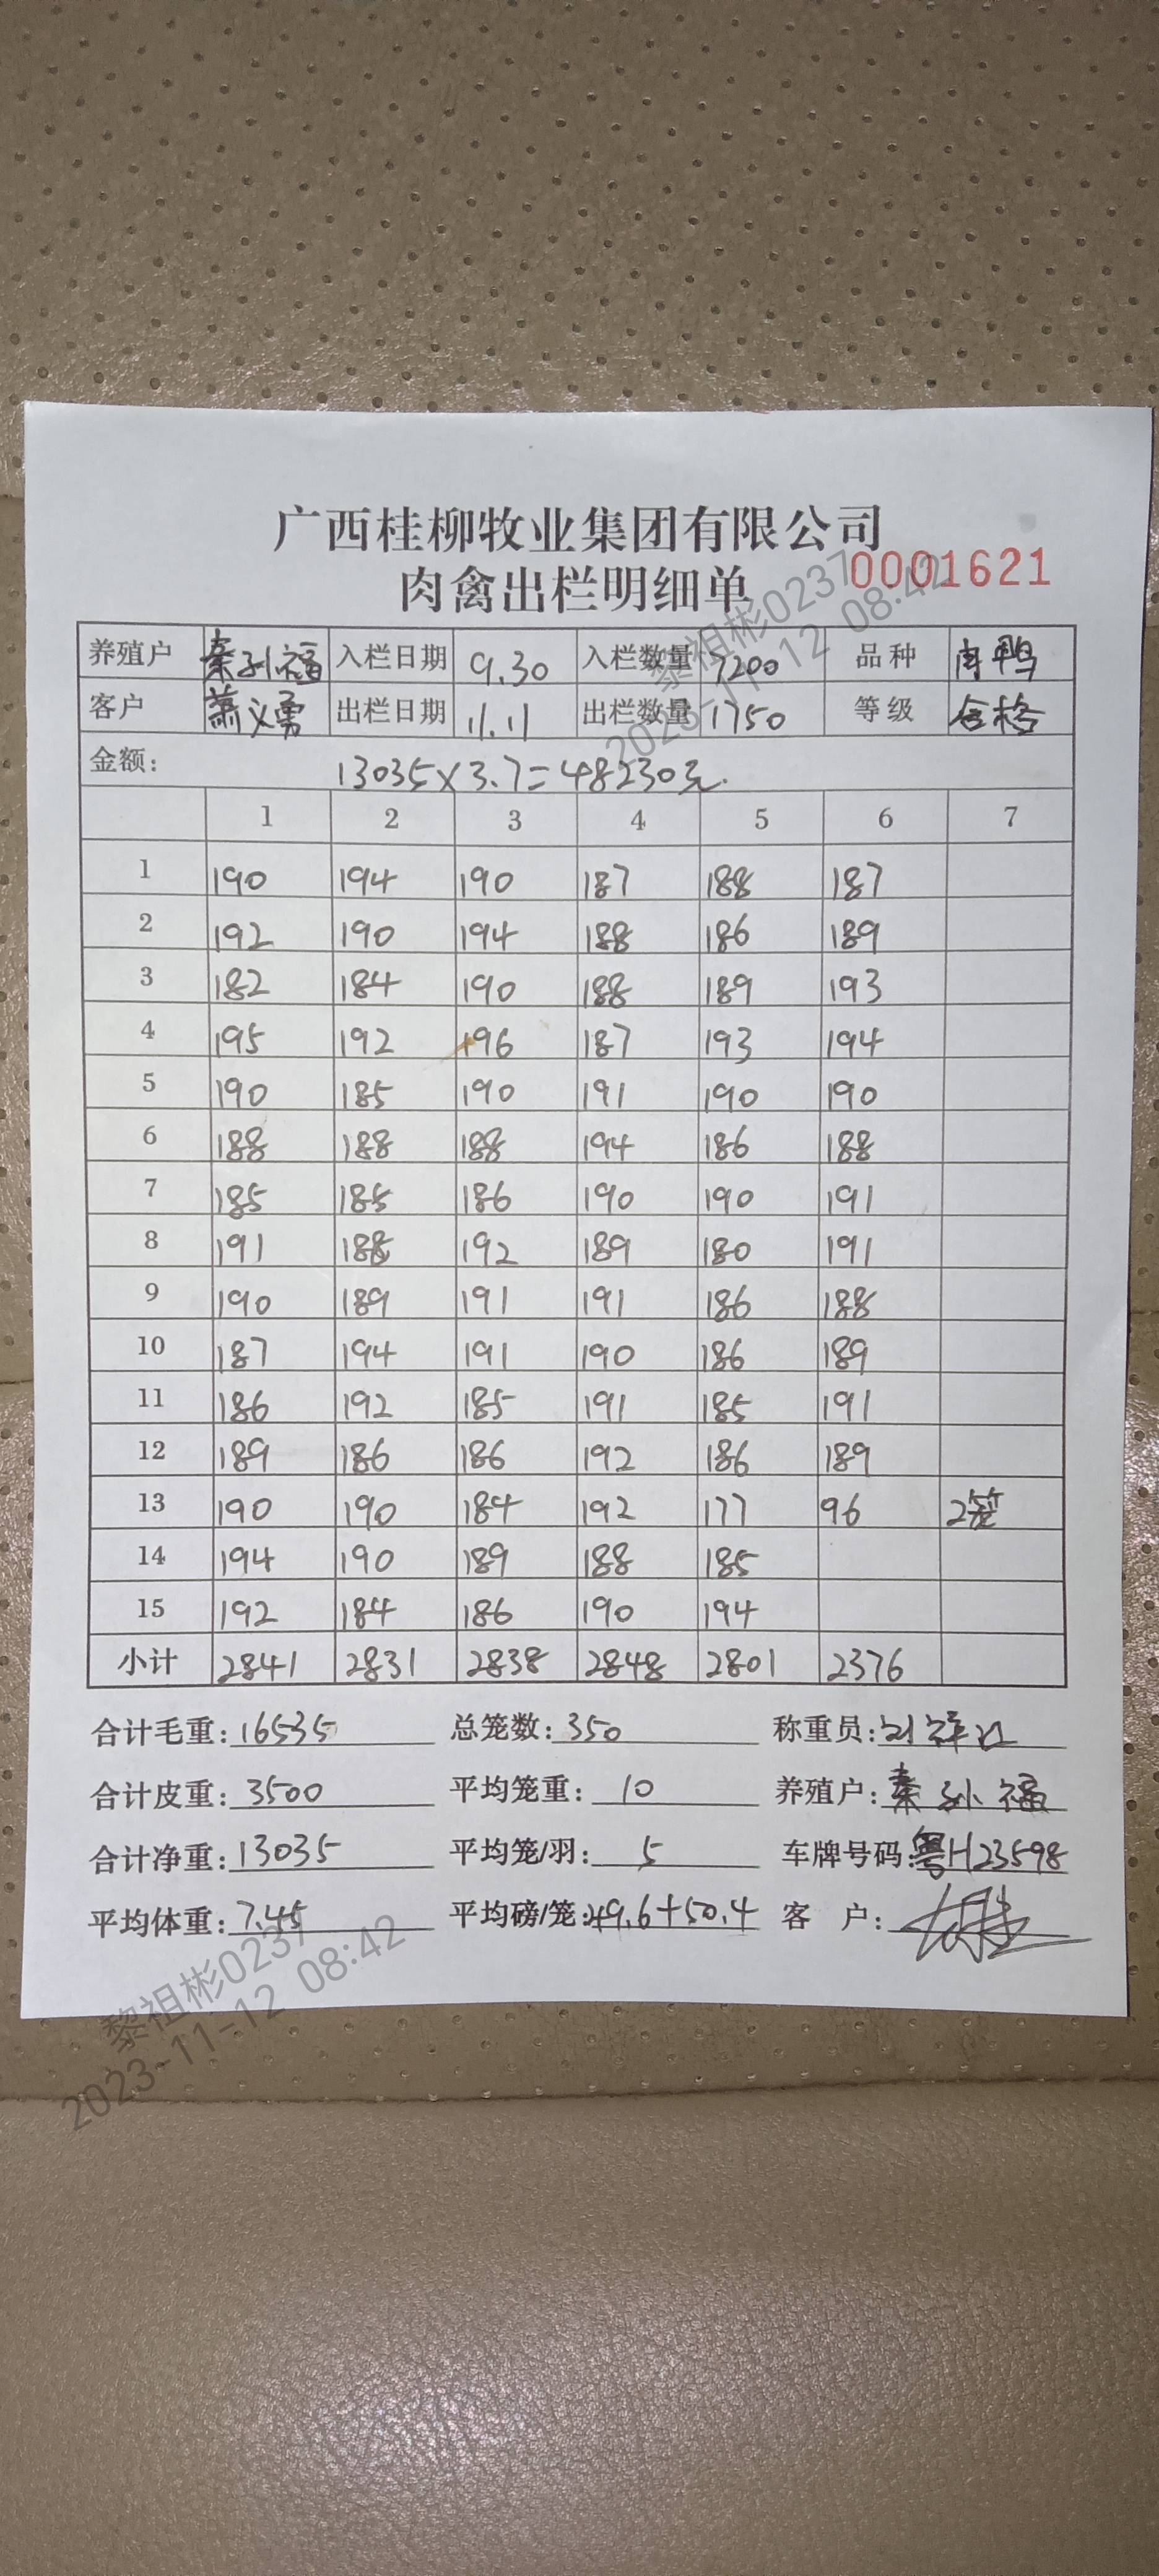 广西桂柳牧业集团有限公司
肉禽出栏明细单 0001621
养殖户 秦孙福 入栏日期 9.30 入栏数量 7200 品种 肉鸭
客户 萧义勇 出栏日期 11.11 出栏数量 1750 等级 合格
金额: 13035×3.7=48230元.
1 2 3 4 5 6 7
1 190 194 190 187 188 187
2 192 190 194 188 186 189
3 182 184 190 188 189 193
4 195 192 196 187 193 194
5 190 185 190 191 190 190
6 188 188 188 194 186 188
7 185 185 186 190 190 191
8 191 188 192 189 180 191
9 190 189 191 191 186 188
10 187 194 191 190 186 189
11 186 192 185 191 185 191
12 189 186 186 192 186 189
13 190 190 184 192 177 96 2笼
14 194 190 189 188 185
15 192 184 186 190 194
小计 2841 2831 2838 2848 2801 2376
合计毛重: 16535 总笼数: 350 称重员:
合计皮重: 3500 平均笼重: 10 养殖户: 秦孙福
合计净重: 13035 平均笼/羽: 5 车牌号码: 粤H23598
平均体重: 7.45 平均磅/笼: 49.6+50.4 客 户:
黎祖彬0237
2023-11-12 08:42
黎祖彬0237
2023-11-12 08:42